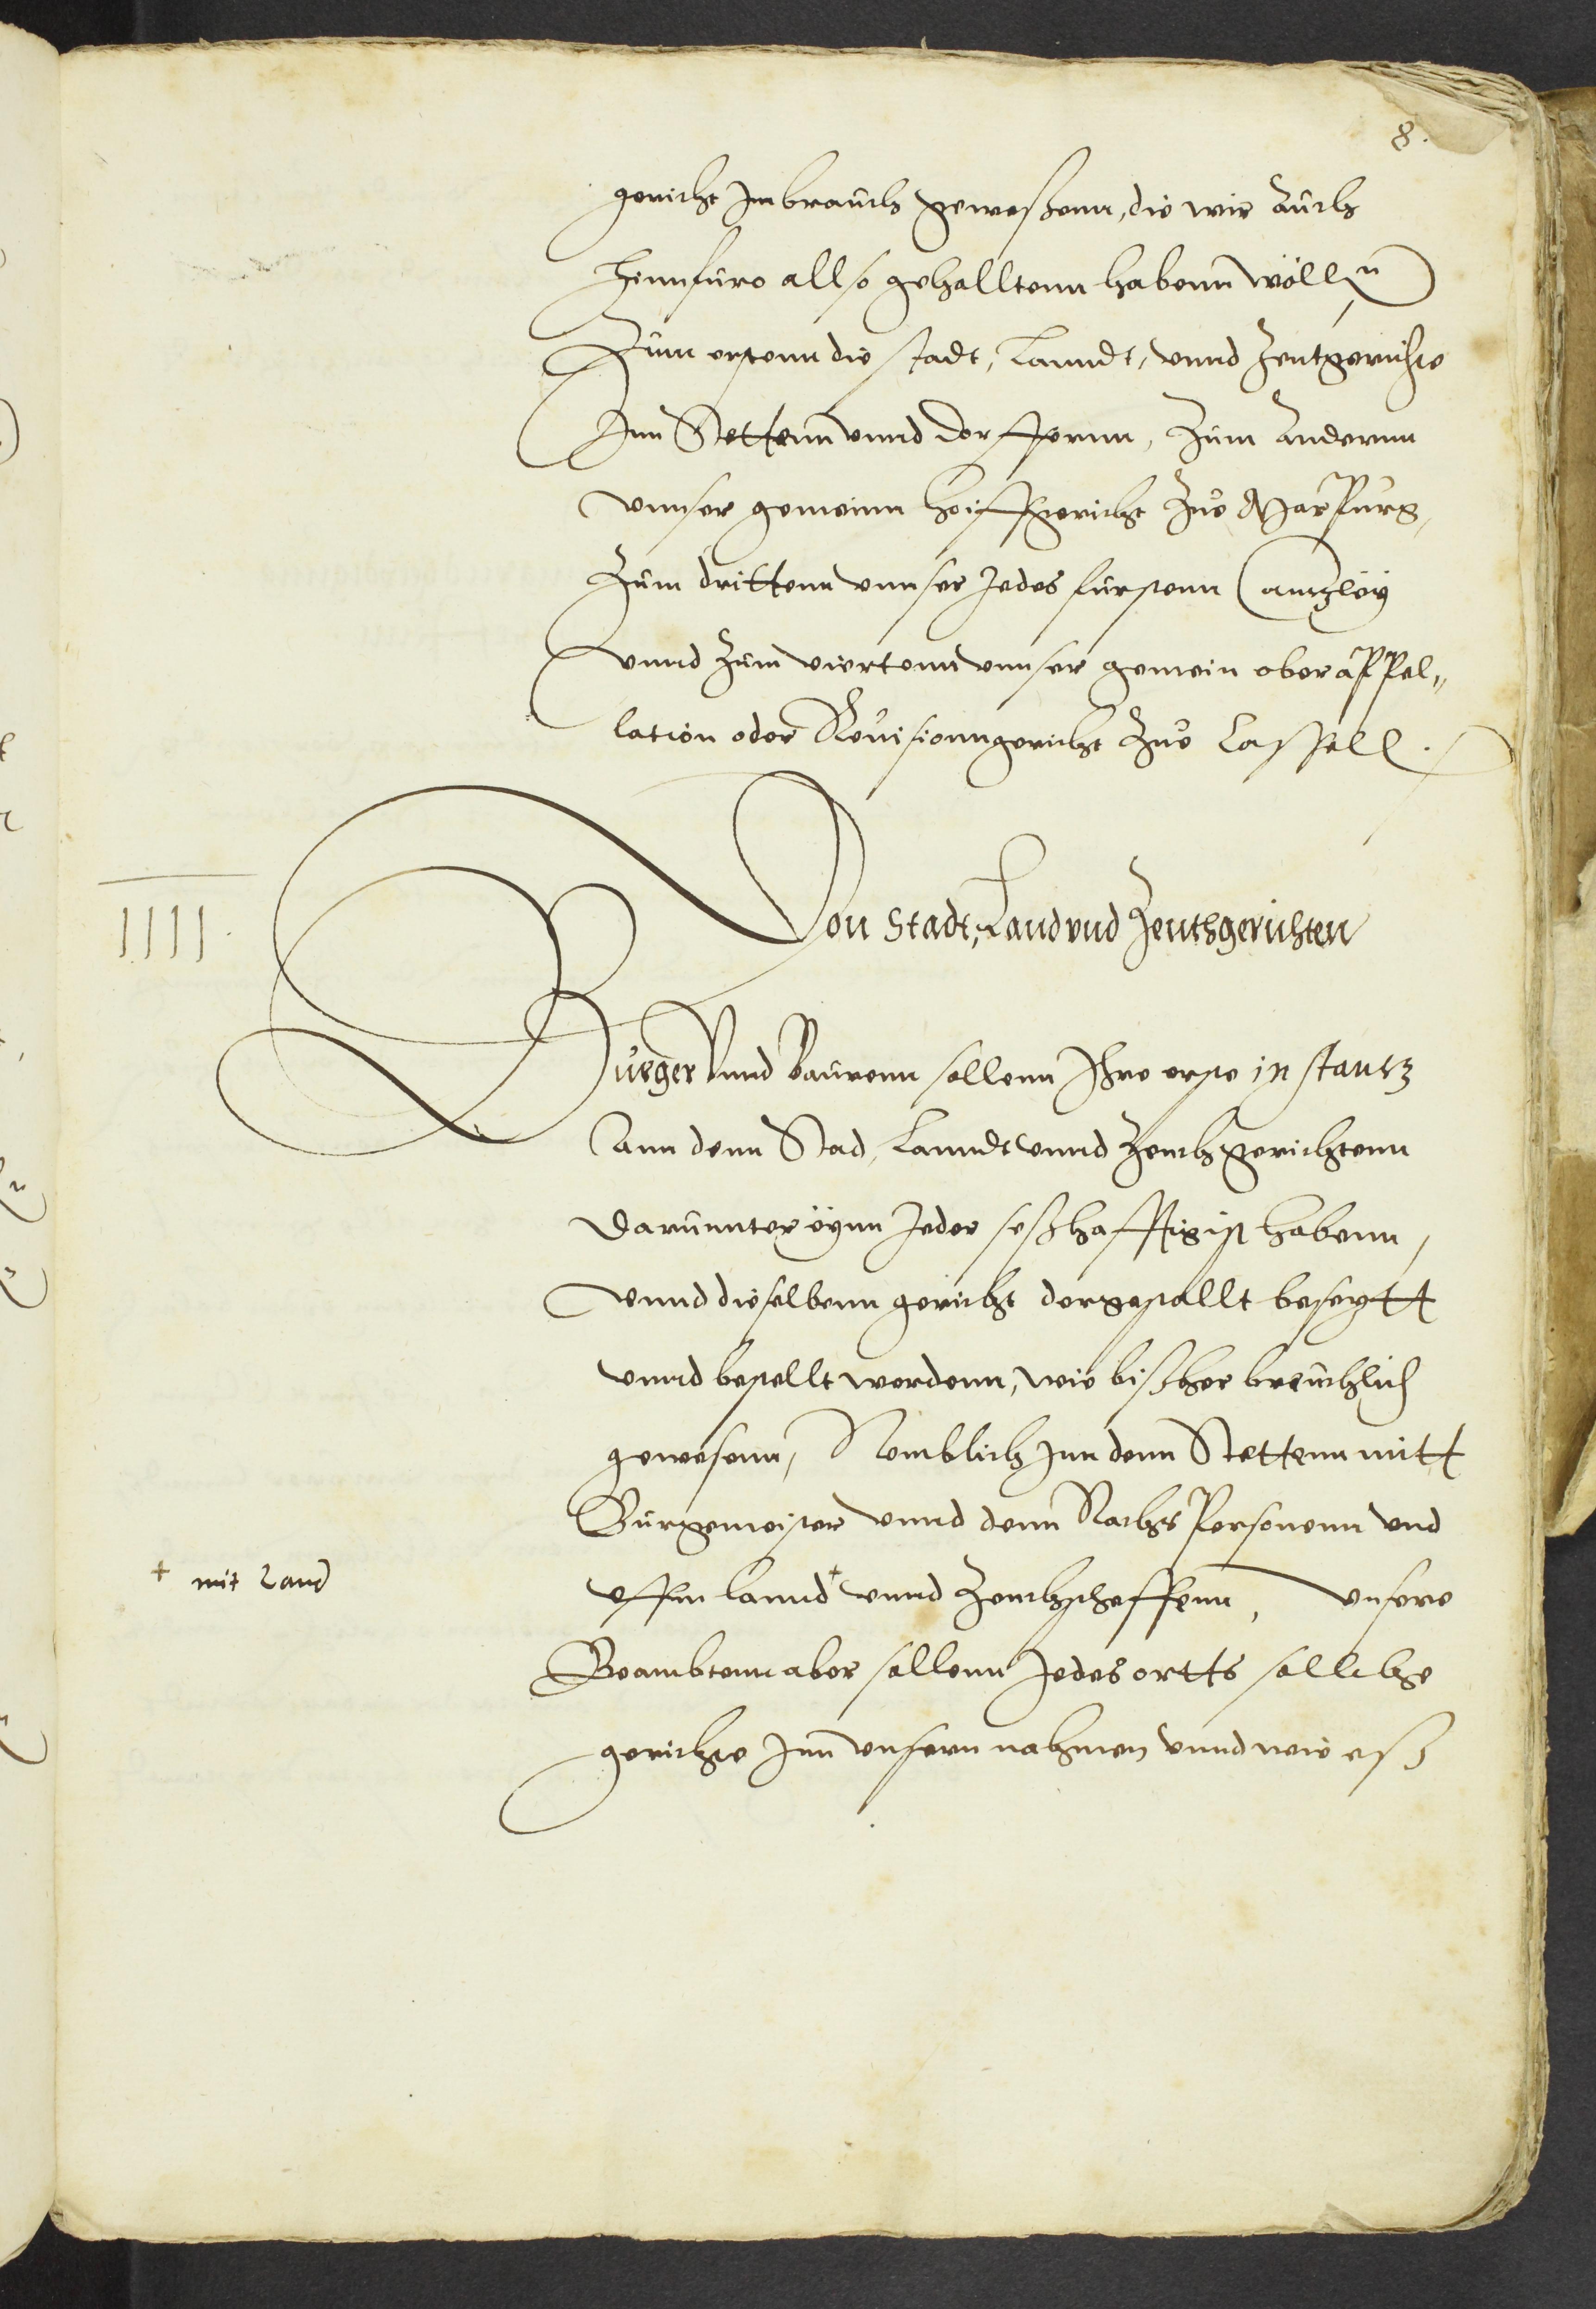 8.
gericht Im brauch geweßenn, die wir auch
hinnfüro allso gehalltenn habenn wölln
Zum erstenn die stadt, Lanndt, vnnd Zentgerichte
Inn Stettenn vnnd dorffernn, Zum Anndernn
vnnser gemeinn hoiffgericht Zue Marpurg,
Zum drittenn vnnser Jedes fürstenn Cantzley
vnnd Zum viertenn vnnser gemein oberappel„
lation oder Reuisionngericht Zue Cassell.
IIII.
Von Stadt, Land vnd Zenthgerichten
Bürger Vnnd Baurenn sollenn Ihre erste instantz
Ann denn Stad, Lanndt vnnd Zenthgerichtenn
darunnter eynn Jeder seßhafftig ist habenn,
vnnd dieselbenn gericht dergestallt besetztt
vnnd bestellt werdenn, wie bißher breuchlich
gewesenn, Nemblich Inn denn Stettenn mitt
Bürgemeister vnnd denn Rachts Personenn vnd
vffm lannd+ vnnd Zenthscheffenn, vnsere
+ mit Land
Beambtenn aber sollenn Jedes ortts sollche
gerichte Inn vnsern nahmen vnnd wie eß